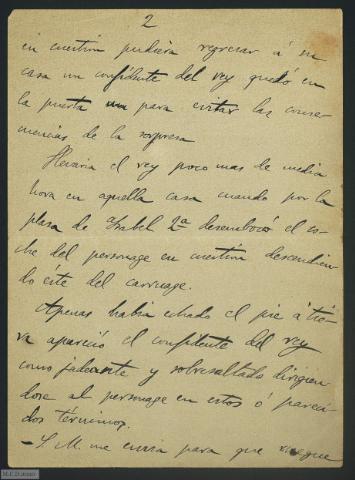 2
en cuestión pudiera regresar á su
casa un confidente del rey quedó en
la puerta para evitar las conse-
cuencias de la sorpresa
Llevaria el rey poco mas de media
hora en aquella casa cuando por la
plaza de Isabel 2ª desembocó el co-
che del personage en cuestión descendien-
do éste del carruage.
Apenas habia echado el pie á tie-
rra apareció el confidente del rey
como jadeante y sobresaltado dirigien-
dose al personage en estos ó pareci-
dos términos.
– S. M. me envia para que